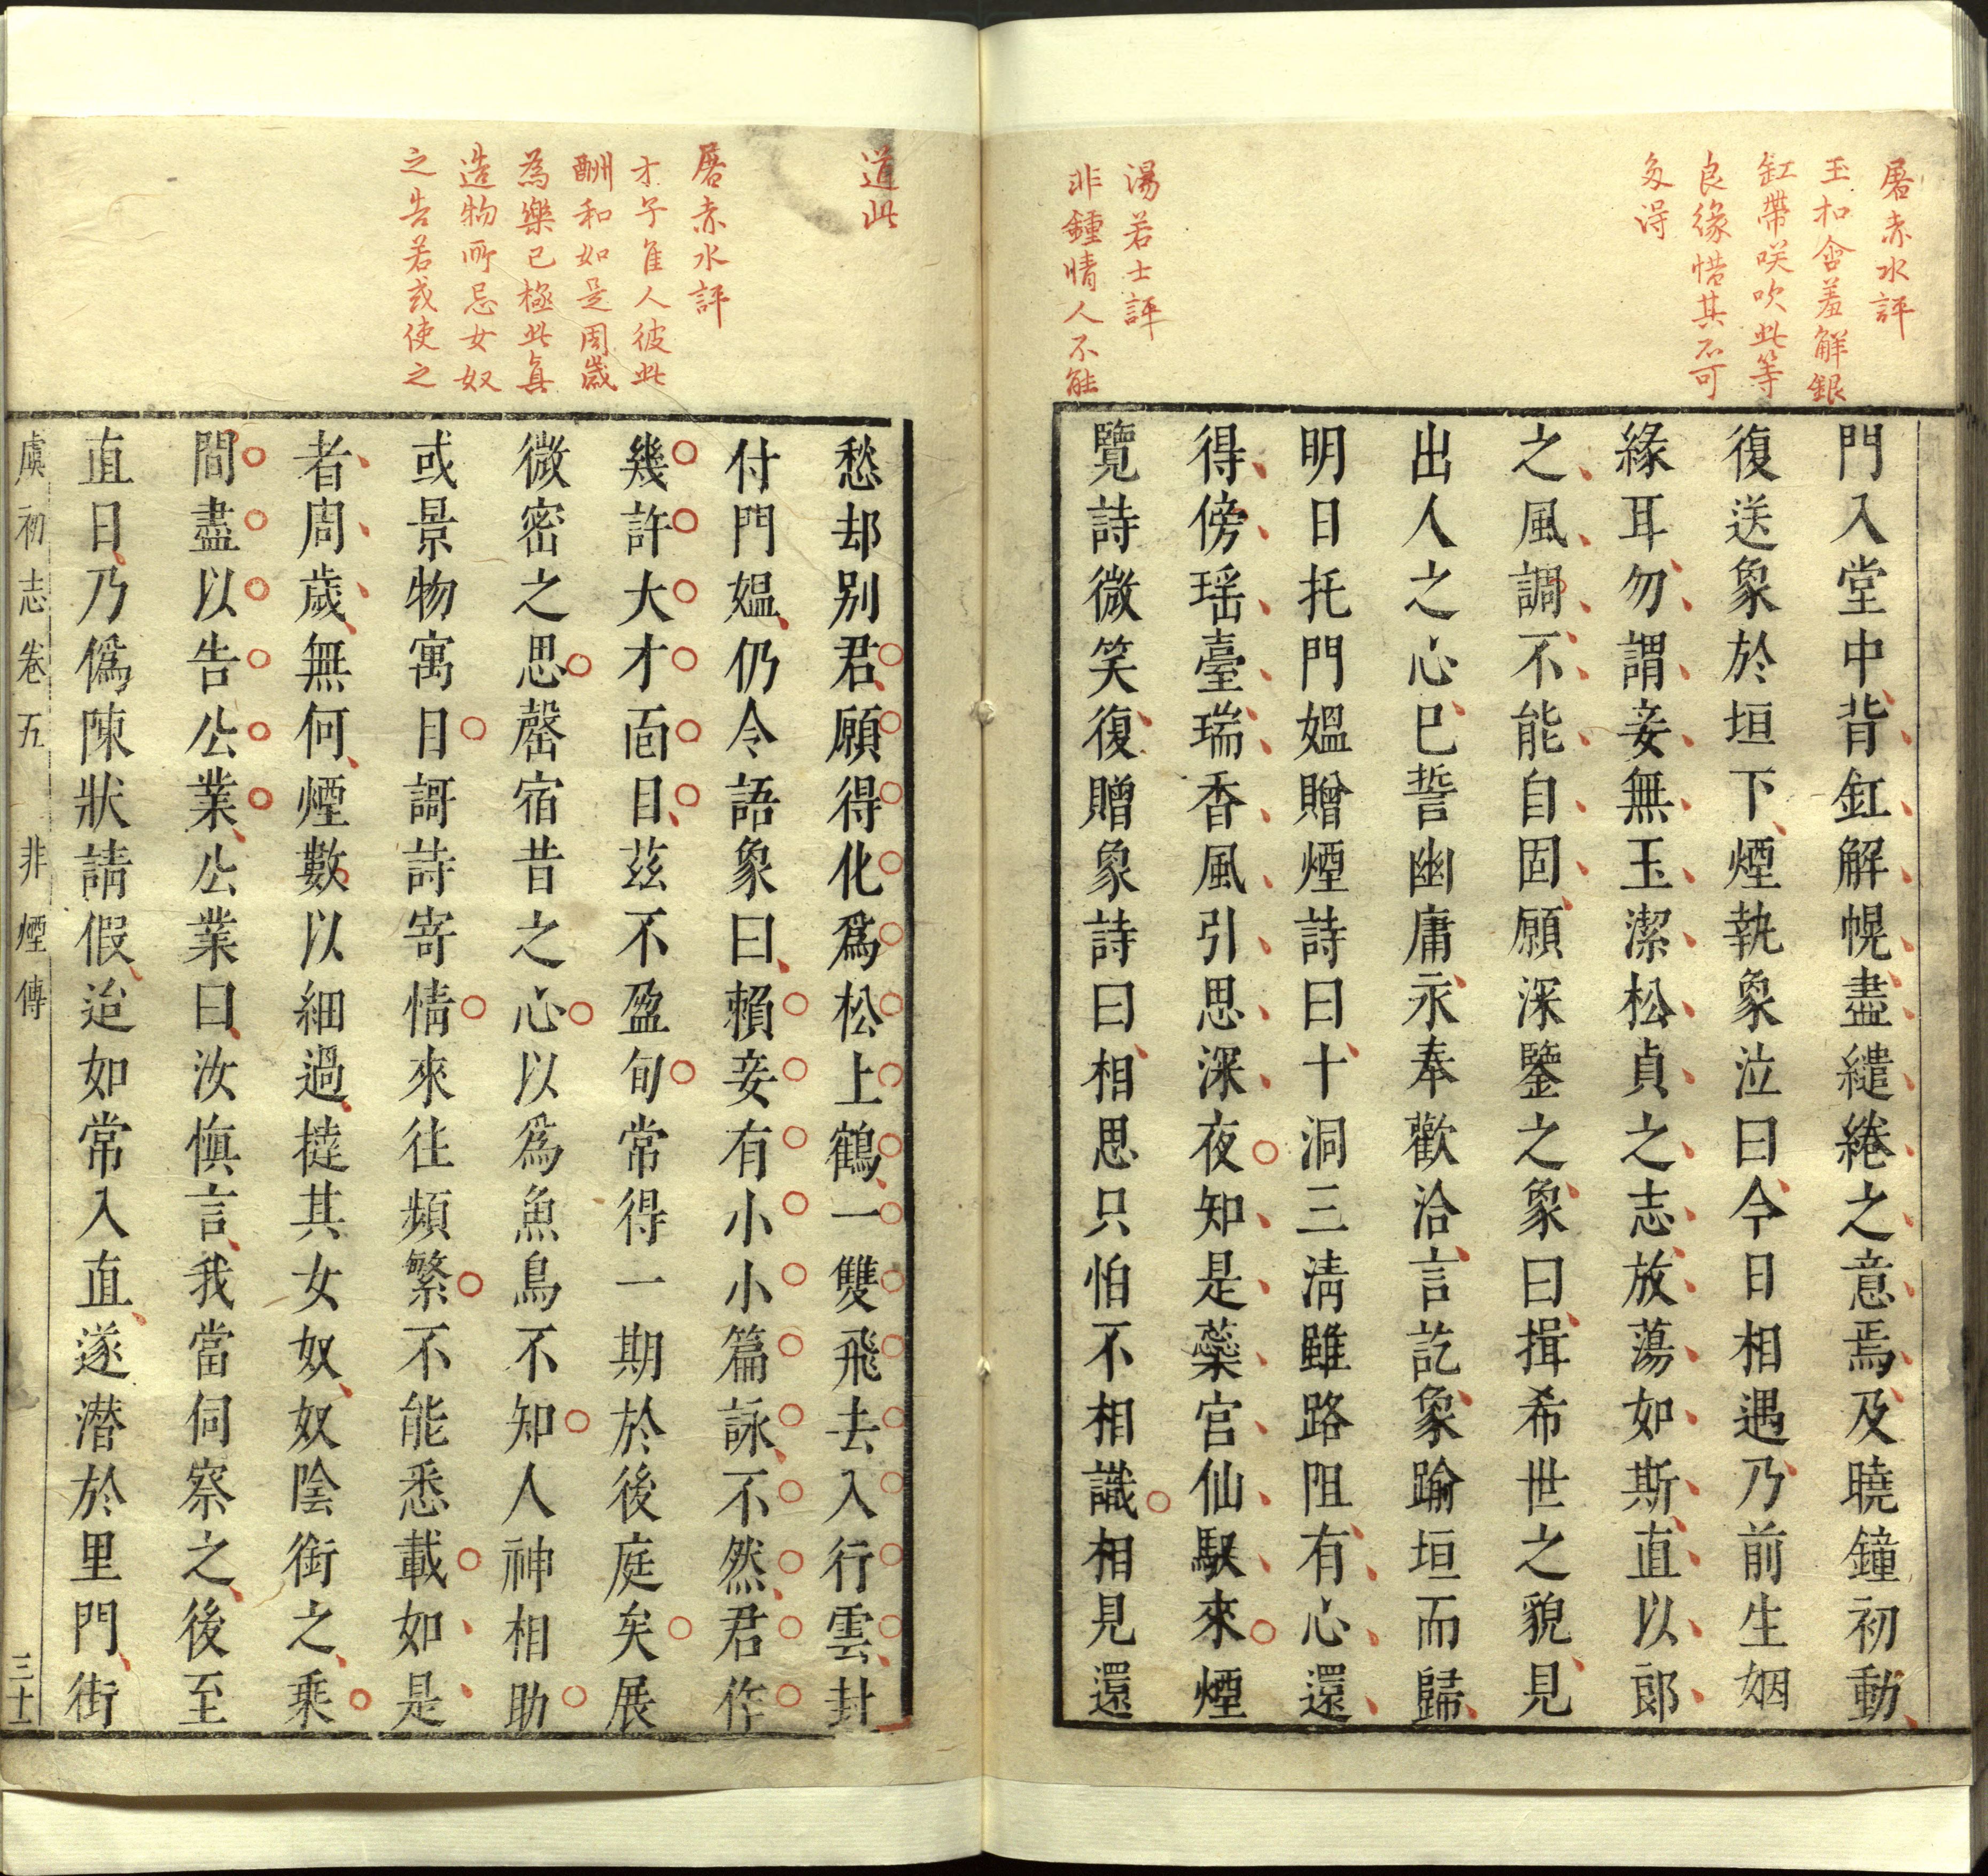 屠赤水評
玉扣含羞解銀
缸帶咲吹此等
良緣惜其不可
多得
湯若士評
非鍾情人不能
門入堂中背釭解幌盡繾綣之意焉及曉鐘初動
復送象於垣下煙執象泣曰今日相遇乃前生姻
緣耳勿謂妾無玉潔松貞之志放蕩如斯直以郎
之風調不能自固願深鑒之象曰揖希世之貌見
出人之心已誓幽庸永奉歡洽言訖象踰垣而歸
明日托門媼贈煙詩曰十洞三淸雖路阻有心還
得傍瑶臺瑞香風引思深夜知是蘂宫仙馭來煙
覽詩微笑復贈象詩曰相思只怕不相識相見還
道此
屠赤水評
才子隹人彼此
酬和如是周歲
為樂已極此真
造物所忌女奴
之告若或使之
愁却别君願得化爲松上鶴一雙飛去入行雲封
付門媼仍令語象曰賴妾有小小篇詠不然君作
幾許大才面目茲不盈旬常得一期於後庭矣展
微密之思罄宿昔之心以爲魚鳥不知人神相助
或景物寓目謌詩寄情來往頻繁不能悉載如是
者周歲無何煙數以細過撻其女奴奴陰銜之乘
間盡以告公業公業曰汝慎言我當伺察之後至
直日乃僞陳狀請假迨如常入直遂潛於里門街
虞初志卷五 非煙傳 三十